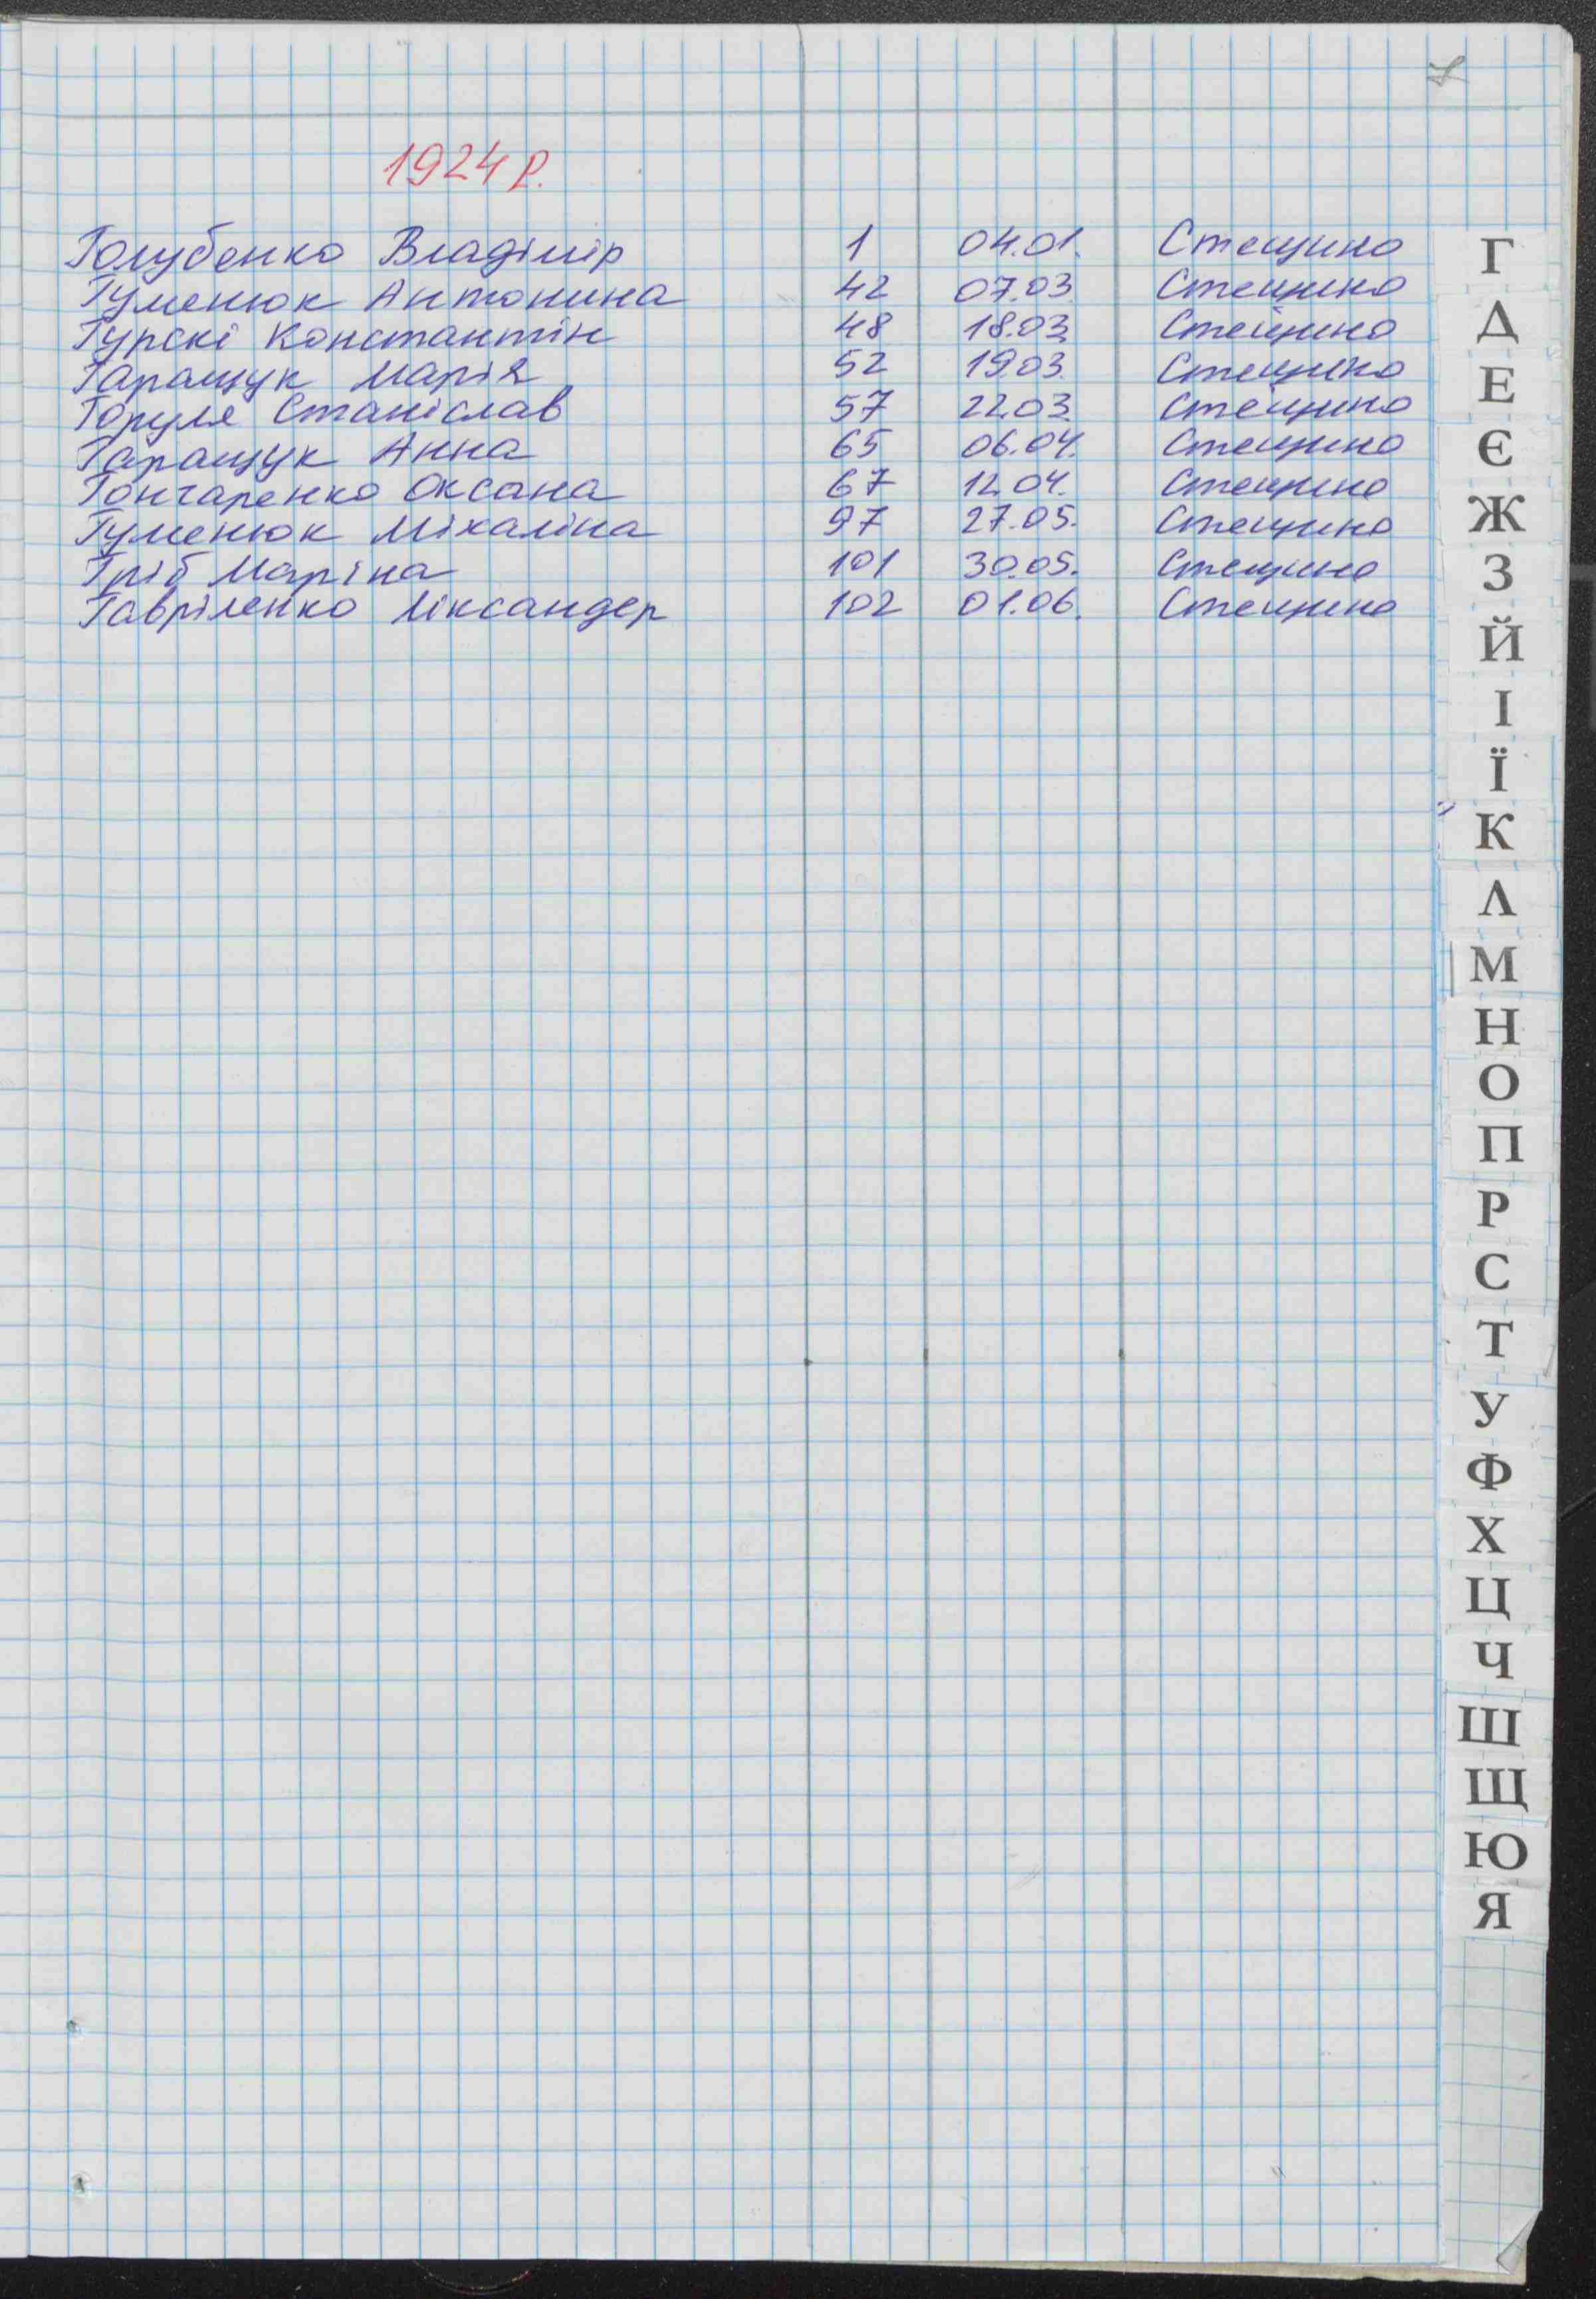 1924 р.
Голубенко Владімір 1 04.01. Стецино
Гуменюк Антонина 42 07.03 Стецино
Гурскі Константін 48 18.03 Стецино
Гаращук Марія 52 19.03. Стецино
Горуля Станіслав 57 22.03 Стецино
Гаращук Анна 65 06.04. Стецино
Гончаренко Оксана 67 12.04. Стецино
Гуменюк Міхаліна 97 27.05. Стецино
Гріб Маріна 101 30.05. Стецино
Гавріленко Ліксандер 102 01.06. Стецино
Г
Д
Е
Є
Ж
З
Й
І
Ї
К
Л
М
Н
О
П
Р
С
Т
У
Ф
Х
Ц
Ч
Ш
Щ
Ю
Я